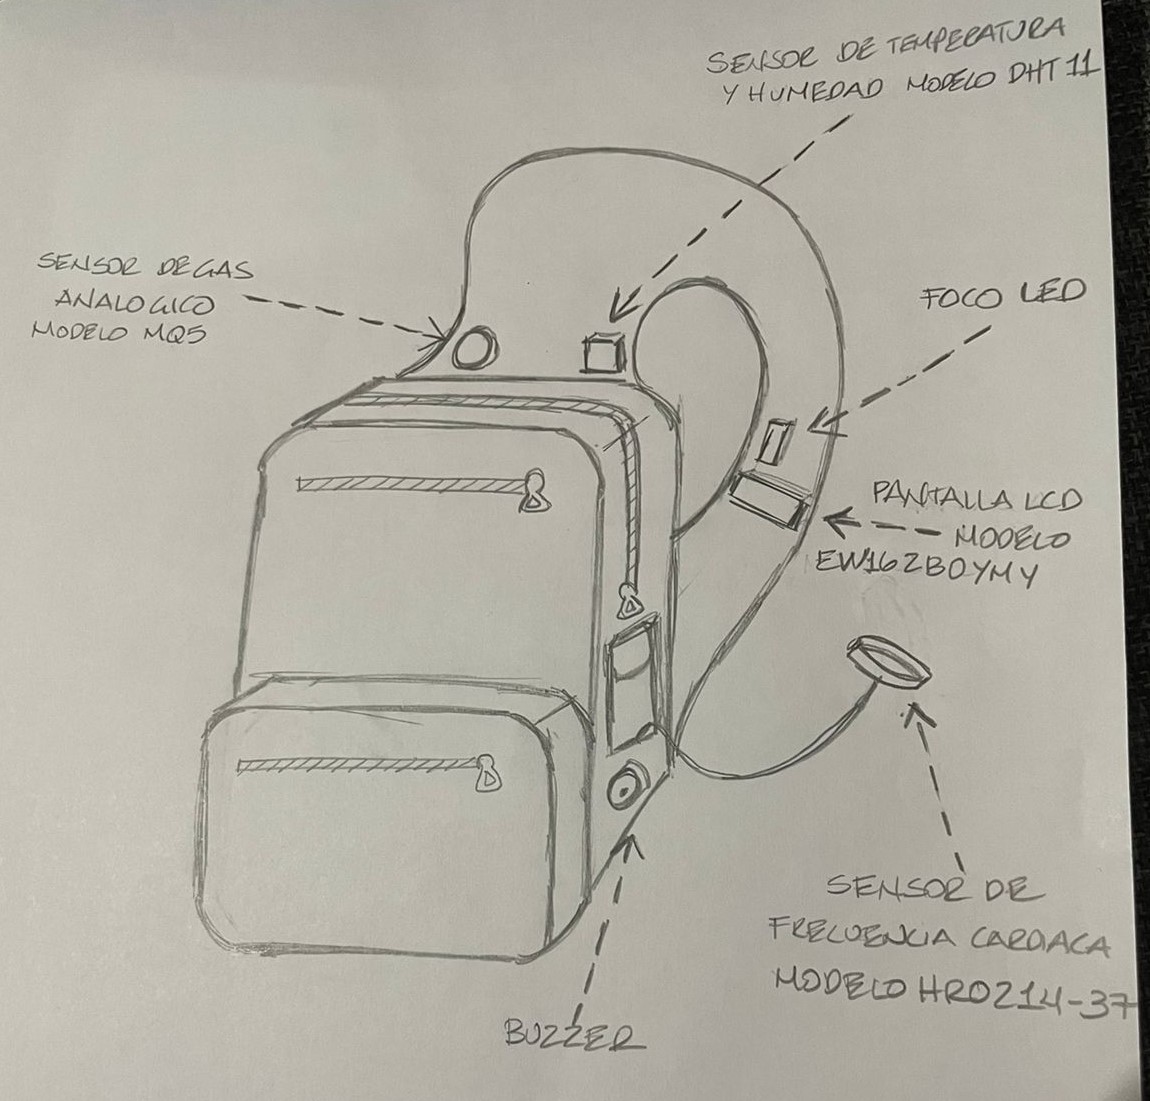 SENSOR DE TEMPERATURA
Y HUMEDAD MODELO DHT 11
SENSOR DE GAS
ANALOGICO
MODELO MQ5
FOCO LED
PANTALLA LCD
MODELO
EW162B0YMY
SENSOR DE
FRECUENCIA CARDIACA
MODELO HR0214-37
BUZZER